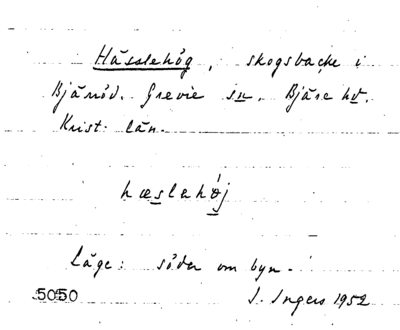 Hässlehög, skogsbacke i
Bjäröd. Grevie sn. Bjäre hd.
Krist. län.
hæslahøj
Läge: söder om byn.
5050 I. Ingers 1952